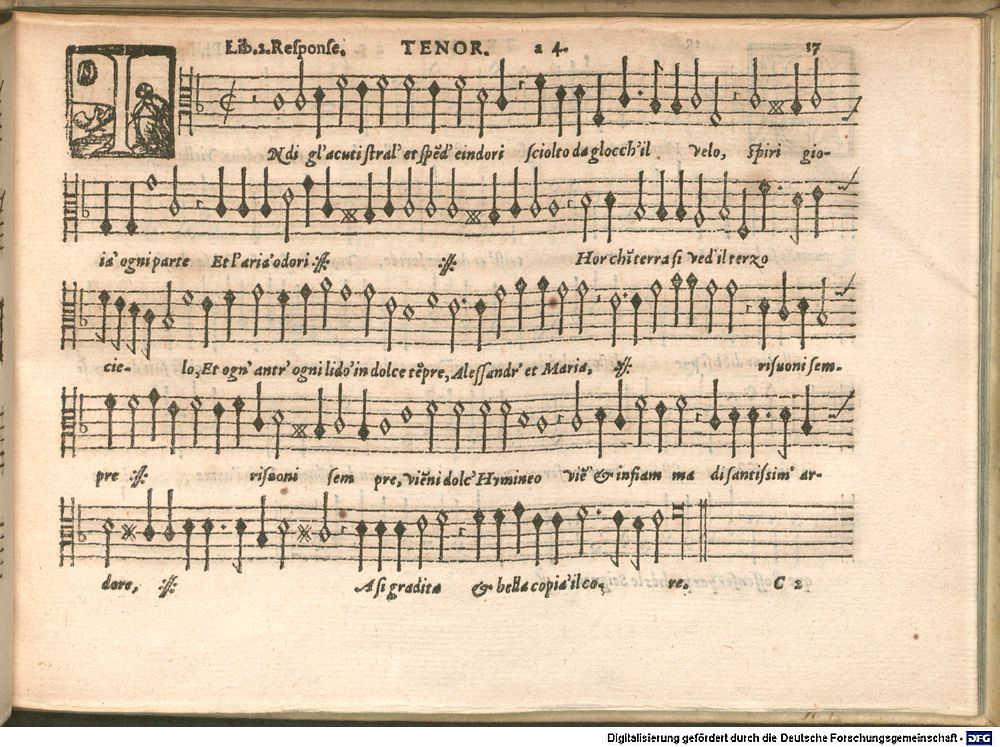 Lib.2.Response. TENOR. a 4. 17
Ndi gl'acuti stral' et spẽd' eindori sciolto da glocch'il velo, spiri gio-
ia' ogni parte Et l'aria' odori :||: :||: Hor ch'ĩ terra si ved'il terzo
cie- lo, Et ogn' antr' ogni lido' in dolce tẽpre, Alessandr' et Maria, :||: risuoni sem-
pre :||: risuoni sem pre, viẽni dolc' Hymineo viẽ & infiam ma di santissim' ar-
dore, :||: A si gradita & bella copia' il co, re. C 2
Digitalisierung gefördert durch die Deutsche Forschungsgemeinschaft - DFG